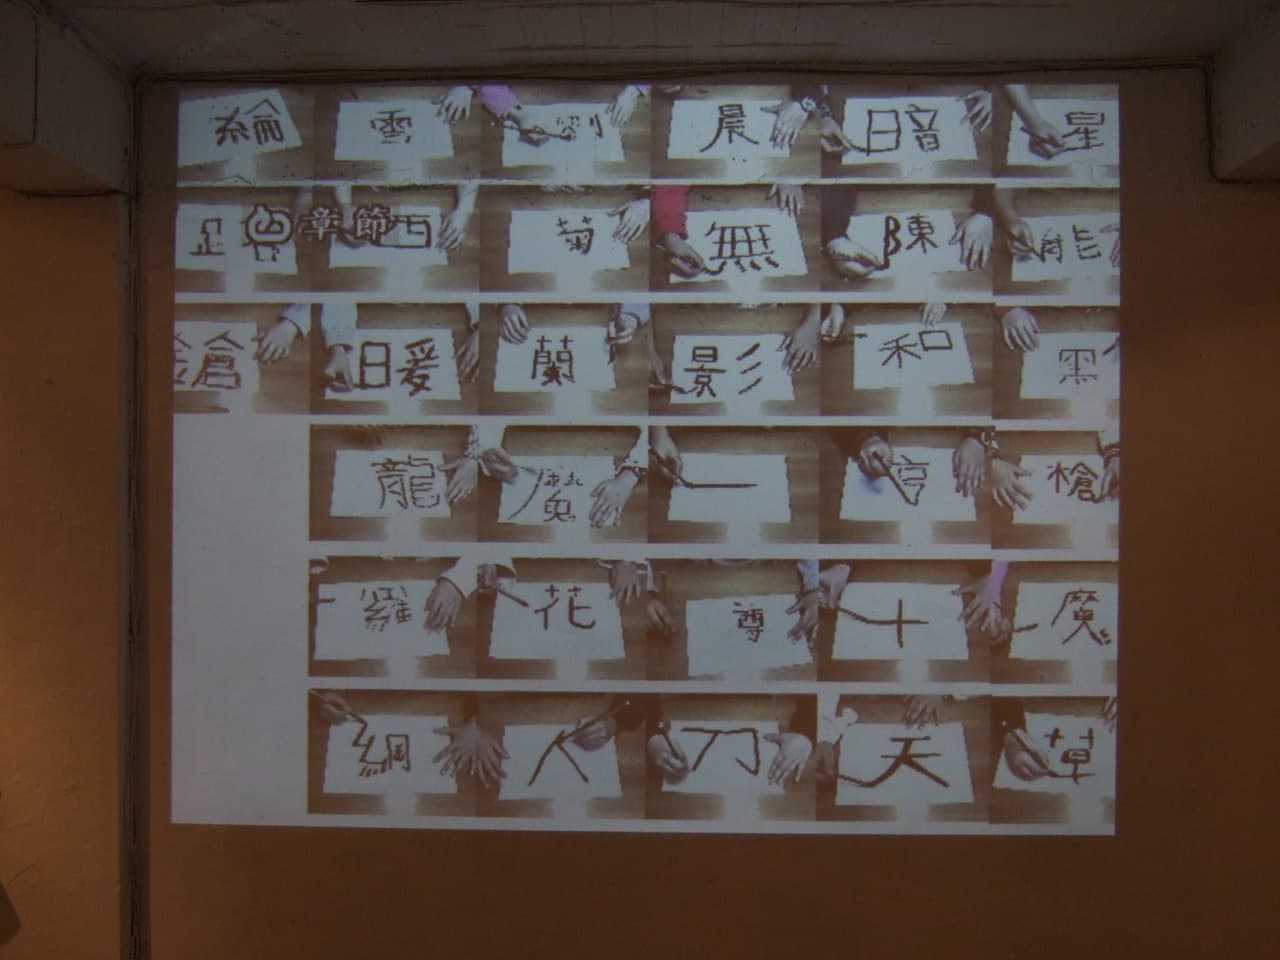 綸 雲 晨 暗 星
章節 菊 無 陳 能
暖 蘭 影 和 黑
龍 魔 一 槍
羅 花 尊 十 魔
綱 人 刀 天 草